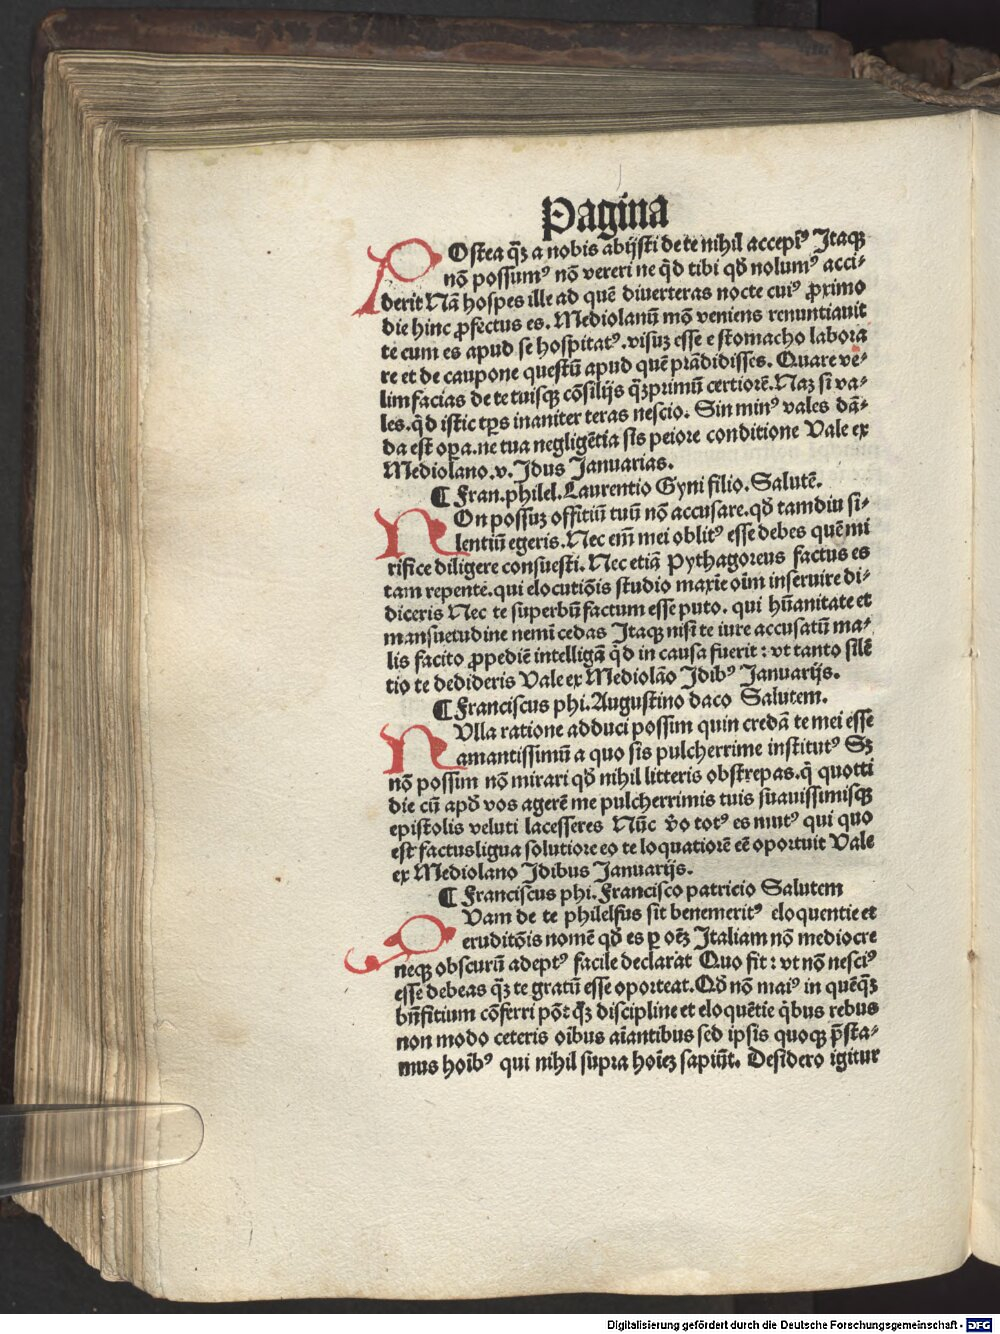 Pagina
POstea qꝫ a nobis abijsti de te nihil accepiꝰ Itaqꝫ
nō possumꝰ nō vereri ne qd tibi qđ nolumꝰ acci-
derit Nā hospes ille ad quē diuerteras nocte cuiꝰ ꝓximo
die hinc ꝓfectus es. Mediolanū mō veniens renuntiauit
te cum es apud se hospitatꝰ.visuꝫ esse e stomacho labora
re et de caupone questū apud quē prādidisses. Quare ve-
lim facias de te tuisqꝫ cōsilijs qꝫprimū certiorē.Naꝫ si va-
les.qd istic tꝑs inaniter teras nescio. Sin minꝰ vales dā-
da est oꝑa.ne tua negligētia sis peiore conditione Vale ex
Mediolano.v. Idus Januarias.
¶ Fran.philel.Laurentio Gyni filio. Salutē.
NOn possuꝫ offitiū tuū nō accusare.qđ tamdiu si-
lentiū egeris.Nec em̄ mei oblitꝰ esse debes quē mi
rifice diligere consuesti. Nec etiā Pythagoreus factus es
tam repente.qui elocutiōis studio maxīe oīm inseruire di-
diceris Nec te superbū factum esse puto. qui hūanitate et
mansuetudine nemī cedas Itaqꝫ nisi te iure accusatū ma-
lis facito ꝓpediē intelligā qd in causa fuerit : vt tanto silē
tio te dedideris Vale ex Mediolāo Idibꝰ Januarijs.
¶ Franciscus phi.Augustino daco Salutem.
NUlla ratione adduci possim quin credā te mei esse
amantissimū a quo sis pulcherrime institutꝰ Sꝫ
nō possim nō mirari qđ nihil litteris obstrepas.q̄ quotti
die cū apđ vos agerē me pulcherrimis tuis suauissimisqꝫ
epistolis veluti lacesseres Nūc v̄o totꝰ es mutꝰ qui quo
est factusligua solutiore eo te loquatiorē eē oportuit Vale
ex Mediolano Idibus Januarijs.
¶ Franciscus phi.Francisco patricio Salutem
QUam de te philelfus sit benemeritꝰ eloquentie et
eruditōis nomē qđ es ꝑ oēꝫ Italiam nō mediocre
neqꝫ obscurū adeptꝰ facile declarat Quo fit : vt nō nesciꝰ
esse debeas qꝫ te gratū esse oporteat.Qđ nō maiꝰ in quēqꝫ
bn̄fitium cōferri pōt qꝫ discipline et eloquētie qbus rebus
non modo ceteris oībus aīantibus sed ipsis quoqꝫ p̄sta-
mus hoībꝰ qui nihil supra hoīeꝫ sapiūt. Desidero igitur
Digitalisierung gefördert durch die Deutsche Forschungsgemeinschaft - DFG